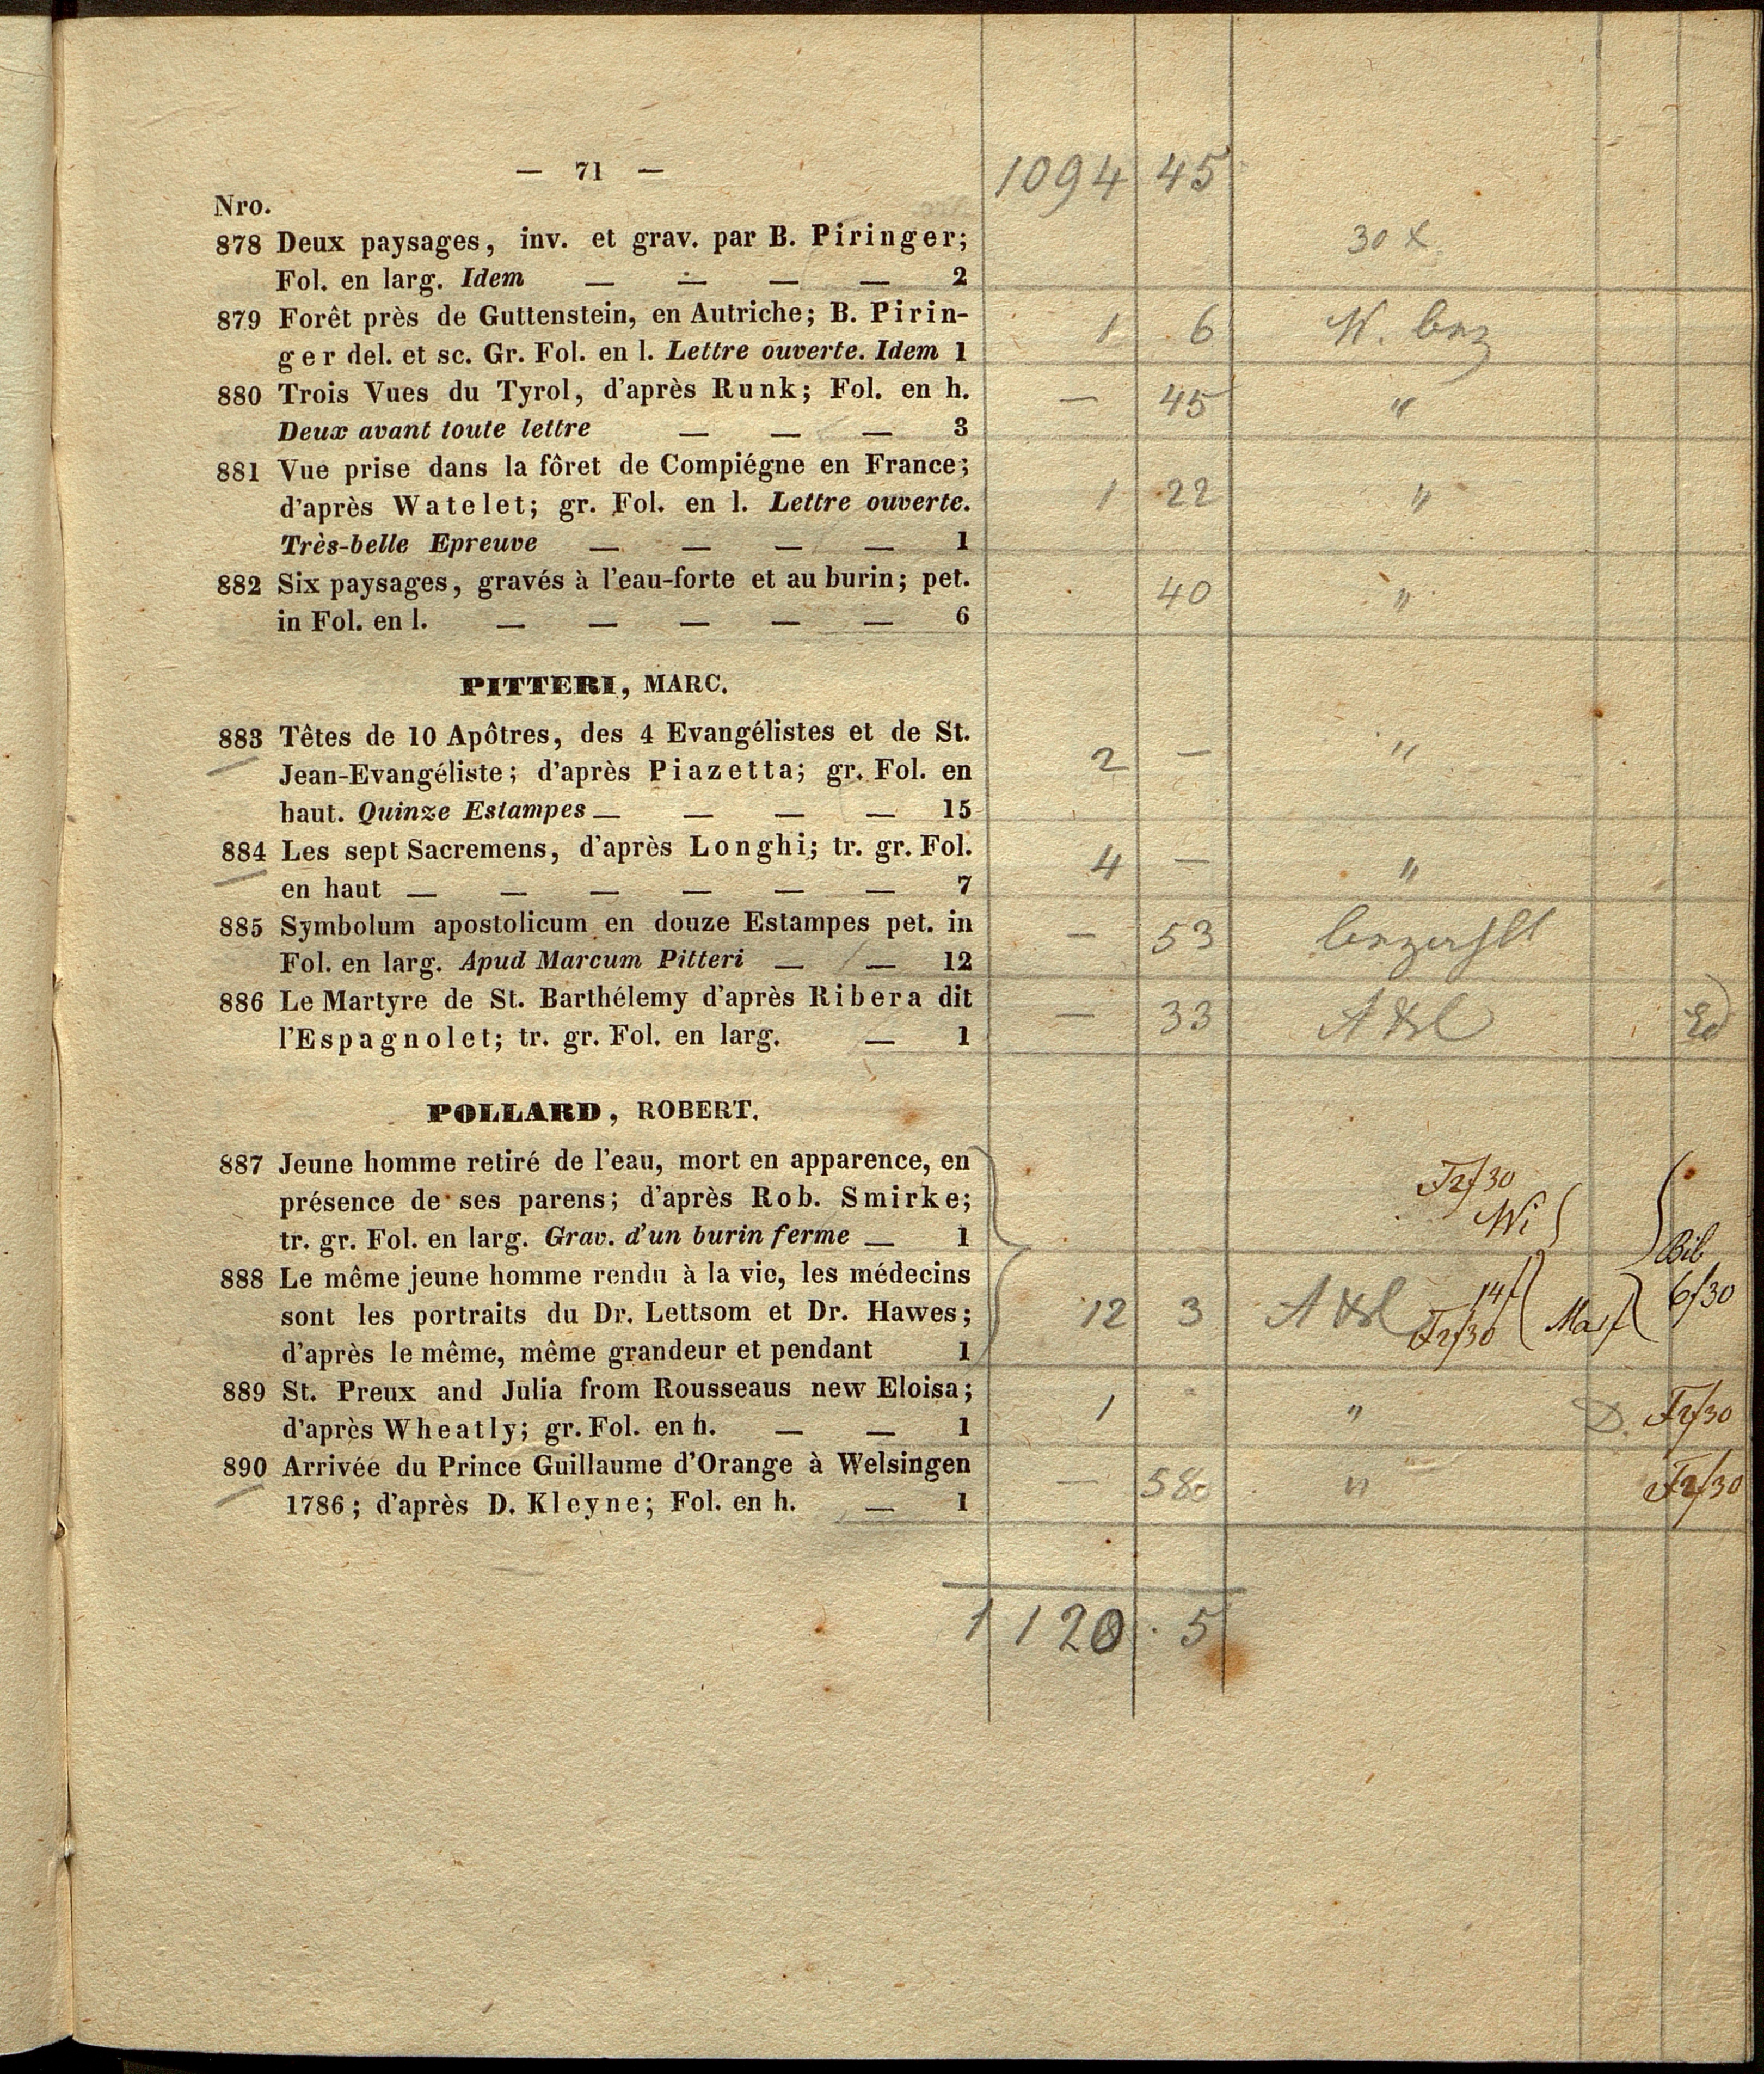 — 71 —
1094 45
Nro.
878 Deux paysages, inv. et grav. par B. Piringer;
30 x
Fol. en larg. Idem — — — — 2
879 Forêt près de Guttenstein, en Autriche; B. Pirin-
ger del. et sc. Gr. Fol. en l. Lettre ouverte. Idem 1
1 6 W. bez
880 Trois Vues du Tyrol, d'après Runk; Fol. en h.
— 45 "
Deux avant toute lettre — — — 3
881 Vue prise dans la fôret de Compiégne en France;
d'après Watelet; gr. Fol. en l. Lettre ouverte.
1 22 "
Très-belle Epreuve — — — — 1
882 Six paysages, gravés à l'eau-forte et au burin; pet.
40 "
in Fol. en l. — — — — — 6
PITTERI, MARC.
883 Têtes de 10 Apôtres, des 4 Evangélistes et de St.
Jean-Evangéliste; d'après Piazetta; gr. Fol. en
2 — "
haut. Quinze Estampes — — — — 15
884 Les sept Sacremens, d'après Longhi; tr. gr. Fol.
4 — "
en haut — — — — — — 7
885 Symbolum apostolicum en douze Estampes pet. in
— 53 bezahlt
Fol. en larg. Apud Marcum Pitteri — — 12
886 Le Martyre de St. Barthélemy d'après Ribera dit
— 33
l'Espagnolet; tr. gr. Fol. en larg. — 1
POLLARD, ROBERT.
887 Jeune homme retiré de l'eau, mort en apparence, en
présence de ses parens; d'après Rob. Smirke;
Wi
tr. gr. Fol. en larg. Grav. d'un burin ferme — 1
Bib
888 Le même jeune homme rendu à la vie, les médecins
sont les portraits du Dr. Lettsom et Dr. Hawes;
12 3 14f 6f30
d'après le même, même grandeur et pendant 1
889 St. Preux and Julia from Rousseaus new Eloisa;
1 " D.
d'après Wheatly; gr. Fol. en h. — — 1
890 Arrivée du Prince Guillaume d'Orange à Welsingen
— 58 "
1786; d'après D. Kleyne; Fol. en h. — 1
1120 . 5